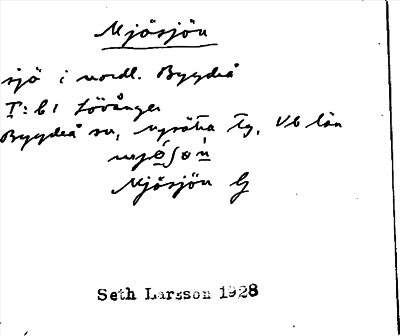 Mjösjön
sjö i nordl. Bygdeå
T: b1 Lövånger
Bygdeå sn, nysätra tg, Vb län
Mjösjön G
Seth Larsson 1928